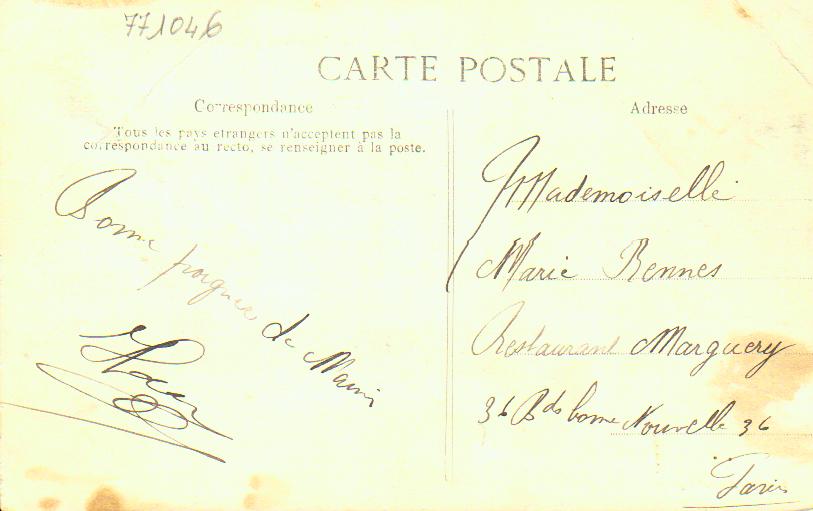 771046
CARTE POSTALE
Correspondance
Tous les pays etrangers n'acceptent pas la
correspondance au recto, se renseigner à la poste.
Bonne poignée de Main
Adresse
Mademoiselle
Marie Rennes
Restaurant Marguery
36 Bds bonne Nouvelle 36
Paris